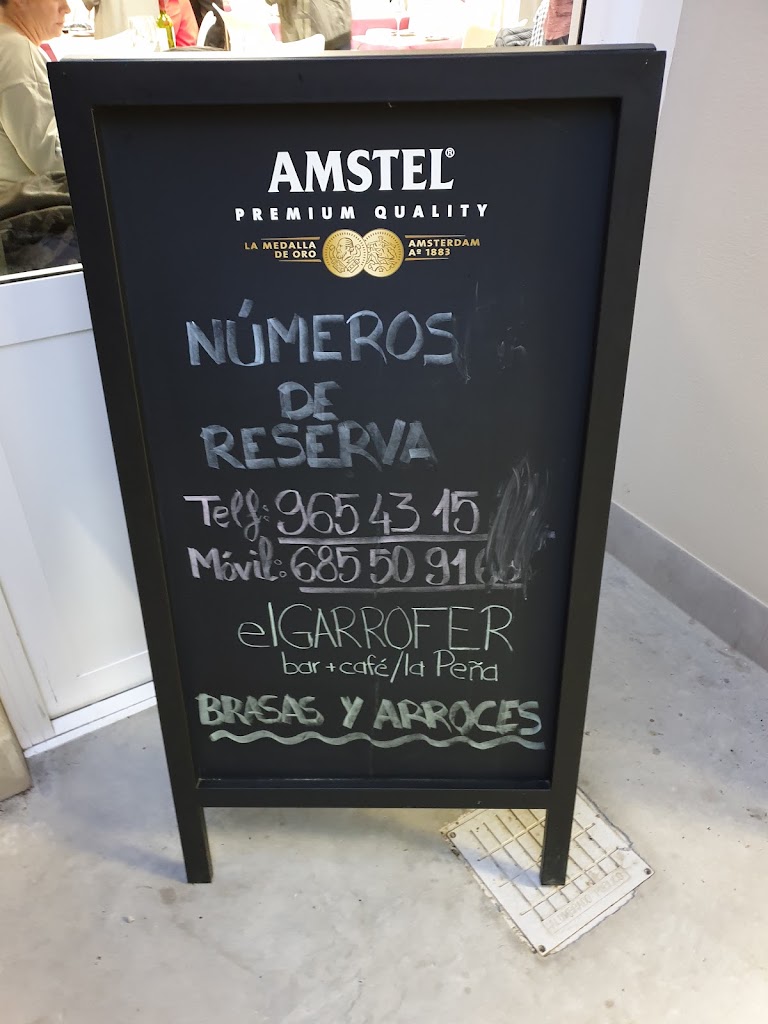 AMSTEL®
PREMIUM QUALITY
LA MEDALLA DE ORO
AMSTERDAM Aº 1883
NÚMEROS
DE
RESERVA
Telf: 965 43 15
Móvil: 685 50 91
elGARROFER
bar + café/la Peña
BRASAS Y ARROCES